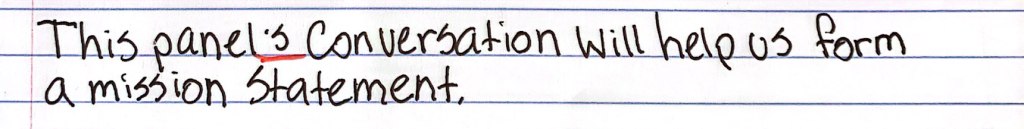 This panel's Conversation Will help us form
a mission Statement.